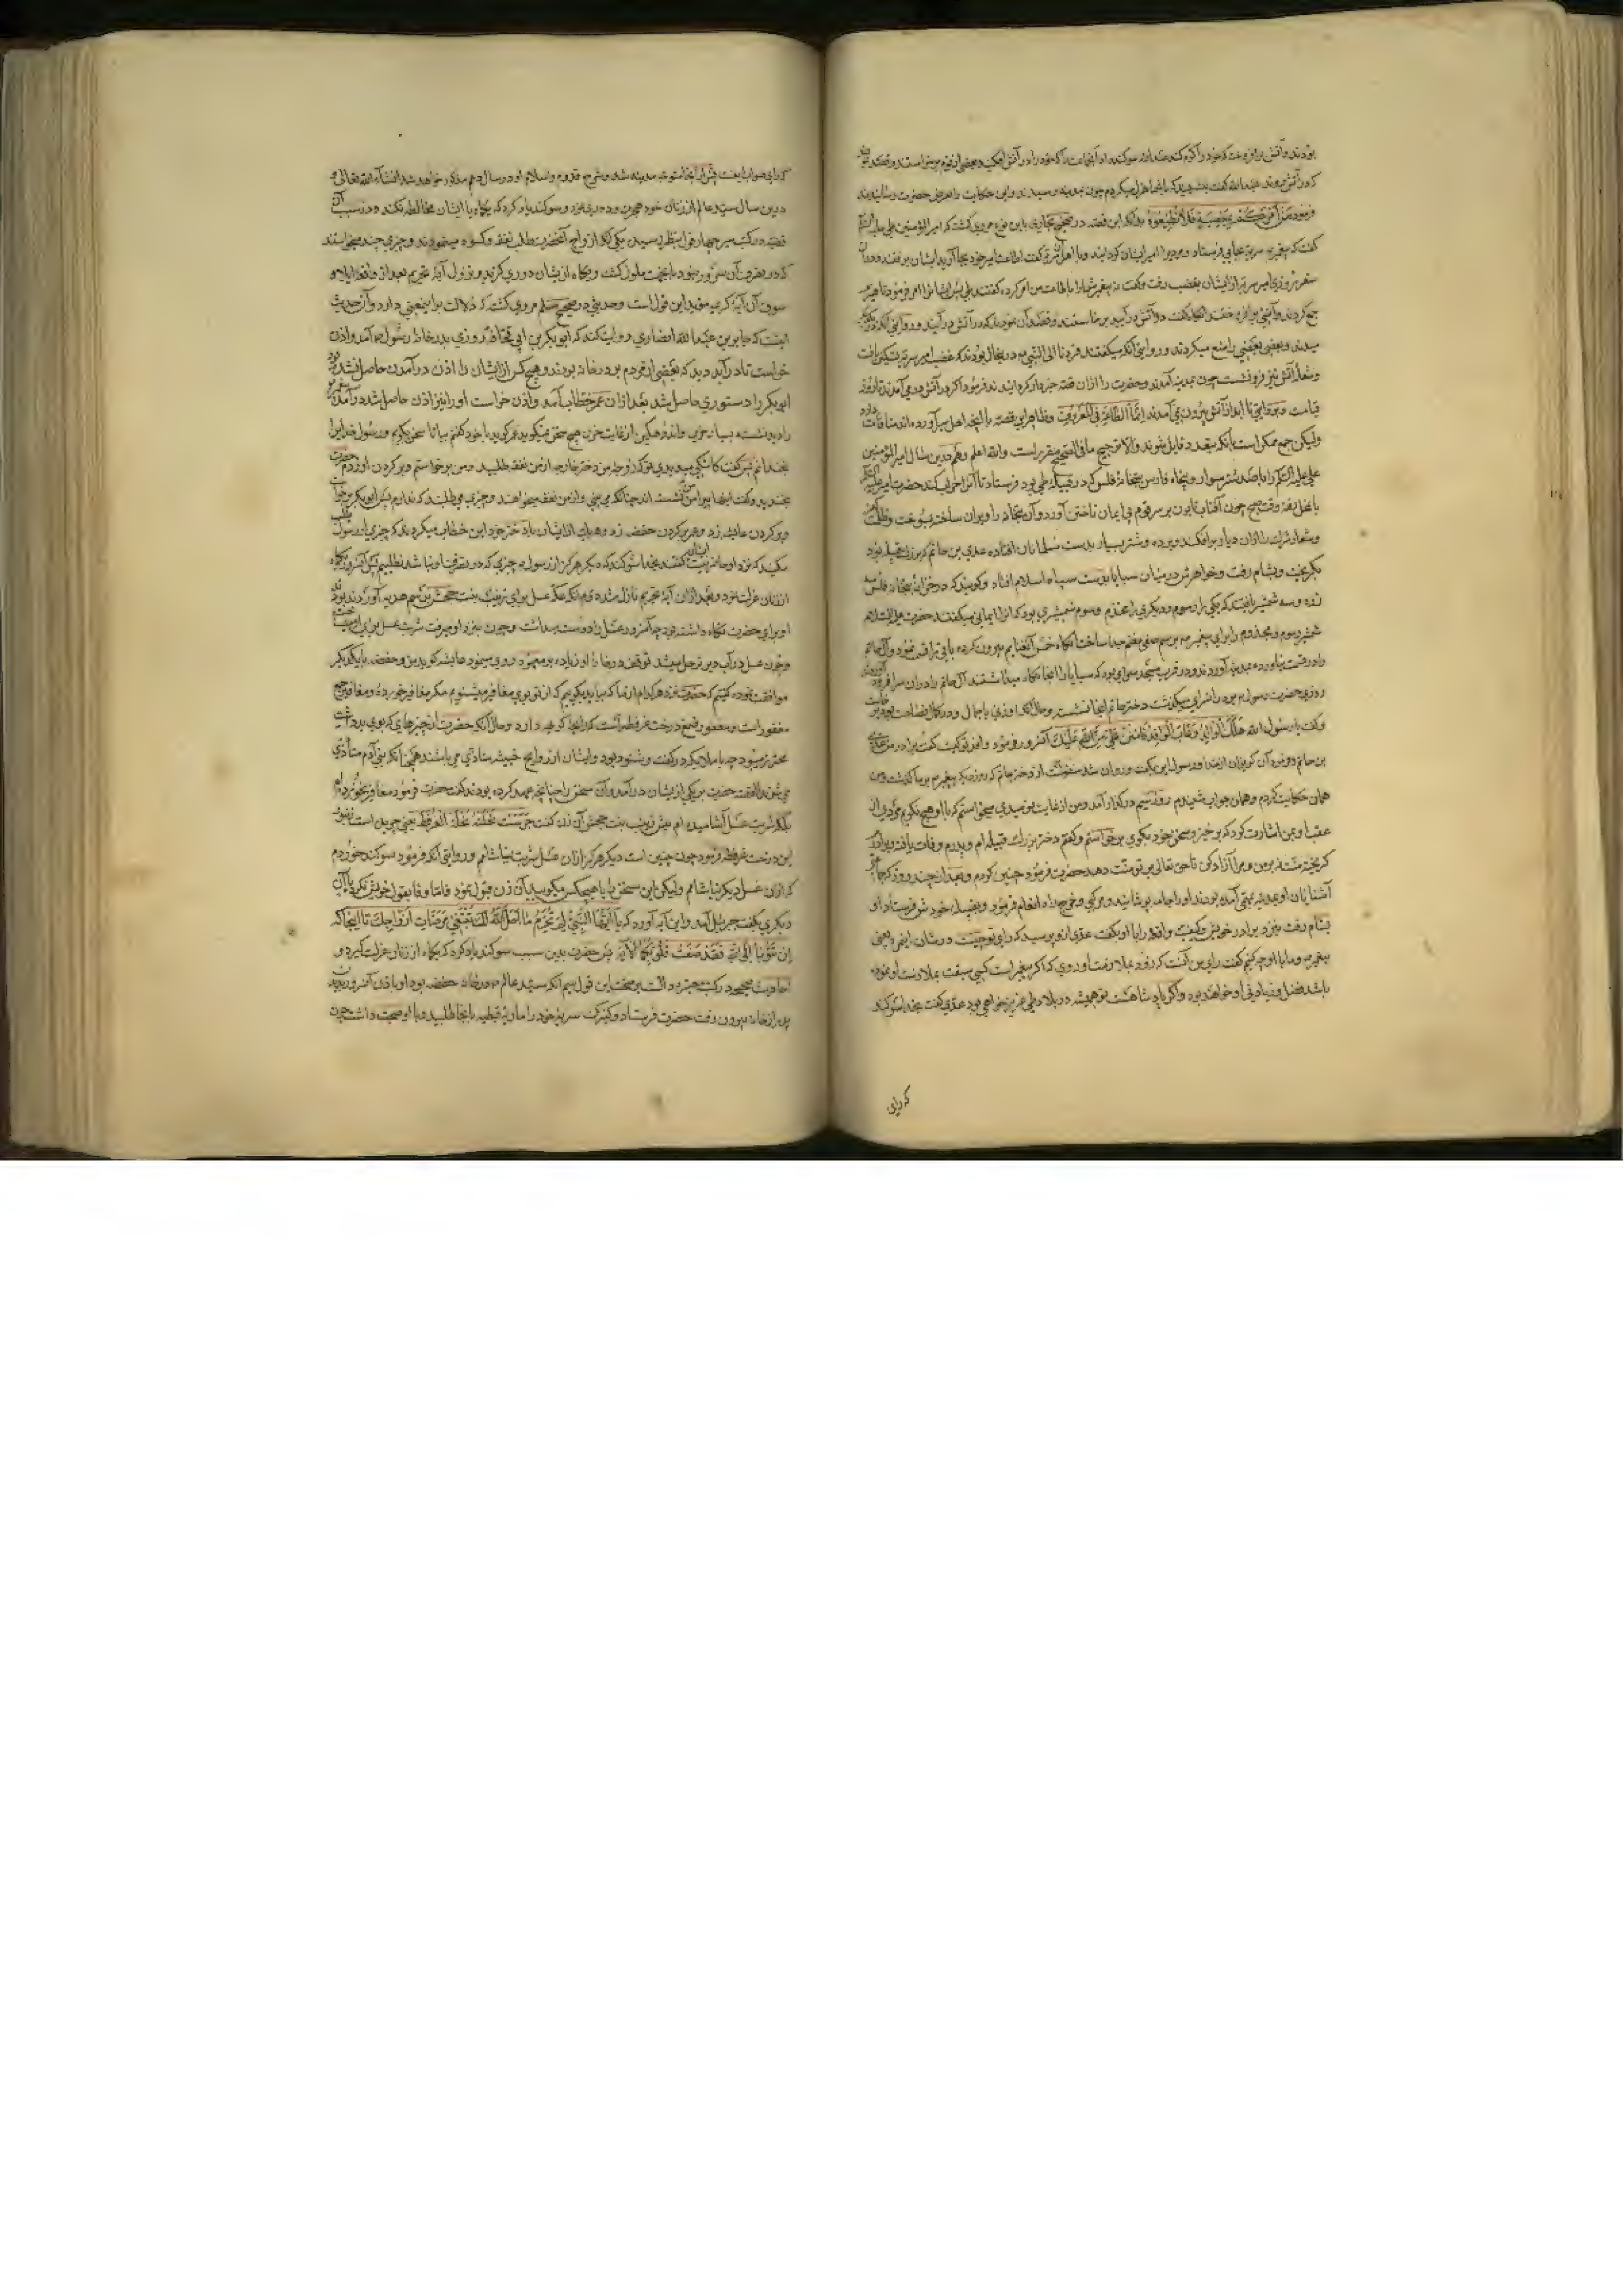 بودند و آتش برافروخت که خود را گرم کنند عبدالله سوگند داد ایشانرا که خود را در آتش افکنید بعضی از قوم برخواستند و قصد
که در آتش روند عبدالله گفت بنشینید که با شما هزل میکردم چون بمدینه رسیدند و این حکایت را بعرض حضرت رسانیدند
فرمود من أمرکم بمعصیة فلا تطیعوه بدانکه این قصه در صحیح بخاری باین نوع مروی گشته که امیر المؤمنین علی علیه السلم
گفت که پیغمبر سریه بجایی فرستاد و مردیرا امیر ایشان گردانید و با اهل سریه گفت اطاعت امیر خود بجا آورید ایشان برفتند و در آن
سفر روزی امیر سریه از ایشان بغضب رفت و گفت نه پیغمبر شما را باطاعت من امر کرده گفتند بلی پس ایشانرا امر فرمود تا هیزم
جمع کردند و آتشی برافروختند آنگاه گفت در آتش در آیید برخاستند و قصد آن نمودند که در آتش در آیند و در روایتی آنکه
میدیدند و بعضی بعضی را منع میکردند و در روایتی آنکه میگفتند فررنا الی النبی در این حال بودند که غضب امیر سریه تسکین یافت
و شعله آتش نیز فرو نشست چون بمدینه آمدند و حضرت را ازان قصه خبردار گردانیدند فرمود اگر در آتش در می آمدند تا روز
قیامت و بروایتی تا ابد از آتش بیرون نمی آمدند إنما الطاعة فی المعروف و ظاهر این قصه با آنچه اهل سیر آورده اند منافات دارد
ولیکن جمع ممکن است بآنکه بتعدد قایل شوند و الا ترجیح ما فی الصحیح مقرر است والله اعلم و هم درین سال امیر المؤمنین
علی علیه السلم را با صد شتر سوار و پنجاه فارس ببتخانه فلس که در قبیله طی بود فرستاد تا آنرا خراب کند حضرت امیر علیه السلم
وقت صبح چون آفتاب تابون بر سر قوم بی ایمان تاختن آورد و آن بتخانه را ویران ساخته بسوخت و ظلمت
و شعار شرک را ازان دیار برافکند و برده و شتر بسیار بدست مسلمانان افتاده عدی بن حاتم که بزرگ قبیله بود
بگریخت و بشام رفت و خواهرش در میان سبایا بدست سپاه اسلام افتاد و گویند که در خزانه بتخانه فلس سه
زره و سه شمشیر یافتند که یکی را رسوم و دیگری را مخذم و سوم شمشیری بود که آنرا یمانی میگفتند حضرت علی علیه السلام
شمشیر رسوم و مخذوم را برای پیغمبر برسم صفی مغنم جدا ساخت آنگاه خمس آن غنایم بیرون کرده باقی را قسمت نمود و آل حاتم
را در قسمت نیاورده بمدینه آوردند و در قرب مسجد سرایی بود که سبایا را آنجا نگاه میداشتند آل حاتم را در آن سرا فرود آوردند
روزی حضرت رسول بر در آن سرای میگذشت دختر حاتم آنجا نشسته و حال آنکه او زنی با جمال و در کمال فصاحت بود
و گفت یا رسول الله هلک الوالد و غاب الوافد فامنن علی من الله علیک آنسرور فرمود وافد تو کیست گفت برادر من عدی
بن حاتم فرمود آن گریزان از خدا و رسول این بگفت و روان شد منقولست از دختر حاتم که روز دیگر پیغمبر بر ما گذشت و من
همان حکایت کردم و همان جواب شنیدم روز سیم در گذر آمد و من از غایت نومیدی نمیخواستم که با او هیچ نگویم مردی از
عقب او بمن اشارت کرد که برخیز و سخن خود بگوی برخواستم و گفتم دختر بزرگ قبیله ام و پدرم وفات یافته و برادرم
گریخته منت نه بر من و مرا آزاد کن تا حق تعالی بر تو منت دهد حضرت فرمود چنین کردم و بعد از چند روز که جمعی از
آشنایان او بمدینه آمده بودند او را جامه پوشانیده و مرکبی و خرج راه انعام فرمود و بقبیله خود فرستاد او
بشام رفت نزد برادر خویش و کیفیت واقعه را با او بگفت عدی ازو پرسید که رای تو چیست در شان این مرد یعنی
پیغمبر و ما با او چه کنیم گفت رای من آنست که زود بملازمت او روی که اگر پیغمبر است کسی سبقت بملازمت او نموده
باشد فضل و زیادتی او خواهد بود و اگر پادشاهست تو همیشه در بلاد طی عزیز خواهی بود عدی گفت بخدا سوگند
که رای
که رای صواب اینست پس از آنجا متوجه مدینه شد و شرح قدوم و اسلام او در سال دهم مذکور خواهد شد انشاء الله تعالی و
درین سال سید عالم از زنان خود هجرت و دوری گزید و سوگند یاد کرد که یکماه با ایشان مخالطه نکند و در سبب آن
قصه در کتب سیر چهار قول بنظر رسیده یکی آنکه ازواج آنحضرت طلب نفقه و کسوه مینمودند و چیزی چند میخواستند
که در تصرف آن سرور نبود بآنجهت ملول گشت و یکماه از ایشان دوری گزید و نزول آیه تحریم بعد از واقعه ایلا و
سوق آن آیه کریمه مؤید این قول است و حدیثی در صحیح مسلم مروی گشته که دلالت بر این معنی دارد و آن حدیث
اینست که جابر بن عبدالله انصاری روایت کند که ابو بکر بن ابی قحافه روزی بدر خانه رسول آمد و اذن
خواست تا در آید دید که بعضی از مردم بر در خانه بودند و هیچ کس از ایشان را اذن در آمدن حاصل نشده بود
ابو بکر را دستوری حاصل شد بعد ازان عمر خطاب آمد و اذن خواست او را نیز اذن حاصل شد در آمد
را دید نشسته بسیار حزین و اندوهگین از غایت حزن هیچ سخن نمیگوید عمر گوید با خود گفتم بیا تا سخن بگویم و رسول خدا را
بخندانم پس گفت کاشکی میدیدی تو که زوجه من دختر خارجه از من نفقه طلبید و من برخواستم و بر گردن او زدم حضرت
بخندید و گفت اینها پیرامن من نشسته اند چنانکه می بینی و از من نفقه میخواهند و چیزی می طلبند که ندارم پس ابو بکر برخاست
و بر گردن عایشه زد و عمر بر گردن حفصه زد و هر یک از ایشان با دختر خود این خطاب میکردند که چیزی از رسول طلب
میکنید که نزد او حاضر نیست ایشان گفتند بخدا سوگند که دیگر هرگز از رسول چیزی که در تصرف او نباشد نطلبیم پس آنسرور یکماه
از زنان عزلت نمود و بعد ازان آیه تحریم نازل شد دوم آنکه عکه عسل برای زینب بنت جحش برسم هدیه آورده بودند
او برای حضرت نگاه داشته بود چه آنسرور عسل را دوست میداشت و چون بنزد او میرفت شربت عسل برای او میساخت
و چون عسل در آب دیرتر حل میشد توقف در خانه او زیاده بر معهود روی مینمود عایشه گوید من و حفصه با یکدیگر
موافقت نموده گفتیم که حضرت نزد هر کدام از ما که بیاید بگوییم که از تو بوی مغافیر میشنویم مگر مغافیر خورده و مغافیر جمع
مغفور است و مغفور صمغ درخت عرفط است که رایحه کریهه دارد و حال آنکه حضرت از چیزهای که بوی بد داشت
محترز میبود چه با ملایکه در گفت و شنود بود و ایشان از روایح خبیثه متاذی می باشند همچنانکه بنی آدم متأذی
می شوند القصه حضرت بر یکی از ایشان در آمد و آن سخن را چنانچه عهد کرده بودند گفت حضرت فرمود مغافیر نخورده ام
بلکه شربت عسل آشامیده ام پیش زینب بنت جحش آن زن گفت جرست نحلته نحلة العرفط یعنی چریده است زنبور
این درخت عرفط فرمود چون چنین است دیگر هرگز ازان عسل شربت نیاشامم و روایتی آنکه فرمود سوگند خوردم
که ازان عسل دیگر نیاشامم ولیکن این سخن را با هیچکس مگویید آن زن قبول نمود فاما وفا بقول خویش نکرد با آن
دیگری بگفت جبرئیل آمد و این آیه آورد که یا أیها النبی لم تحرم ما أحل الله لک تبتغی مرضات أزواجک تا اینجا که
إن تتوبا إلی الله فقد صغت قلوبکما الآیه پس حضرت بدین سبب سوگند یاد کرد که یکماه از زنان عزلت گیرد و
احادیث صحیحه در کتب معتبره دال است بر صحت این قول سیم آنکه سید عالم در خانه حفصه بود او باذن آنسرور بدیدن
پدر از خانه بیرون رفت حضرت فرستاد و کنیزک سریه خود را ماریه قبطیه بآنجا طلبید و با او صحبت داشت چون